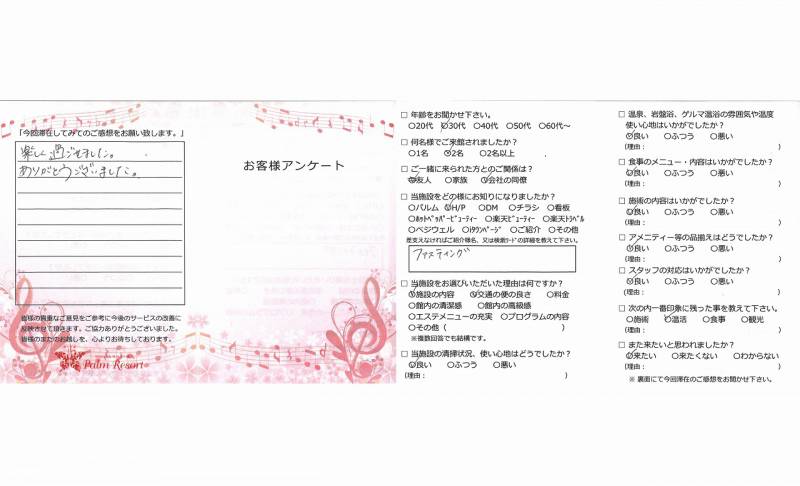 「今回滞在してみてのご感想をお願い致します。」
楽しく過ごせました。
ありがとうございました。
皆様の貴重なご意見をご参考に今後のサービスの改善に
反映させて頂きます。ご協力ありがとうございました。
皆様のまたのお越しを、心よりお待ちしております。
Palm Resort
お客様アンケート
□ 年齢をお聞かせ下さい。
○20代 ○30代 ○40代 ○50代 ○60代～
□ 何名様でご来館されましたか？
○1名 ○2名 ○2名以上
□ ご一緒に来られた方とのご関係は？
○友人 ○家族 ○会社の同僚
□ 当施設をどの様にお知りになりましたか？
○パルム ○H/P ○DM ○チラシ ○看板
○ホットペッパービューティー ○楽天ビューティー ○楽天トラベル
○ベジウェル ○iタウンページ ○ご紹介 ○その他
差支えなければご紹介様名、又は検索ワードの詳細を教えて下さい。
ファスティング
□ 当施設をお選びいただいた理由は何ですか？
○施設の内容 ○交通の便の良さ ○料金
○館内の清潔感 ○館内の高級感
○エステメニューの充実 ○プログラムの内容
○その他（ ）
※複数回答でも結構です。
□ 当施設の清掃状況、使い心地はどうでしたか？
○良い ○ふつう ○悪い
(理由： )
□ 温泉、岩盤浴、ゲルマ温浴の雰囲気や温度
使い心地はいかがでしたか？
○良い ○ふつう ○悪い
(理由： )
□ 食事のメニュー・内容はいかがでしたか？
○良い ○ふつう ○悪い
(理由： )
□ 施術の内容はいかがでしたか？
○良い ○ふつう ○悪い
(理由： )
□ アメニティー等の品揃えはどうでしたか？
○良い ○ふつう ○悪い
(理由： )
□ スタッフの対応はいかがでしたか？
○良い ○ふつう ○悪い
(理由： )
□ 次の内一番印象に残った事を教えて下さい。
○施術 ○温活 ○食事 ○観光
(理由： )
□ また来たいと思われましたか？
○来たい ○来たくない ○わからない
(理由： )
※ 裏面にて今回滞在のご感想をお聞かせ下さい。